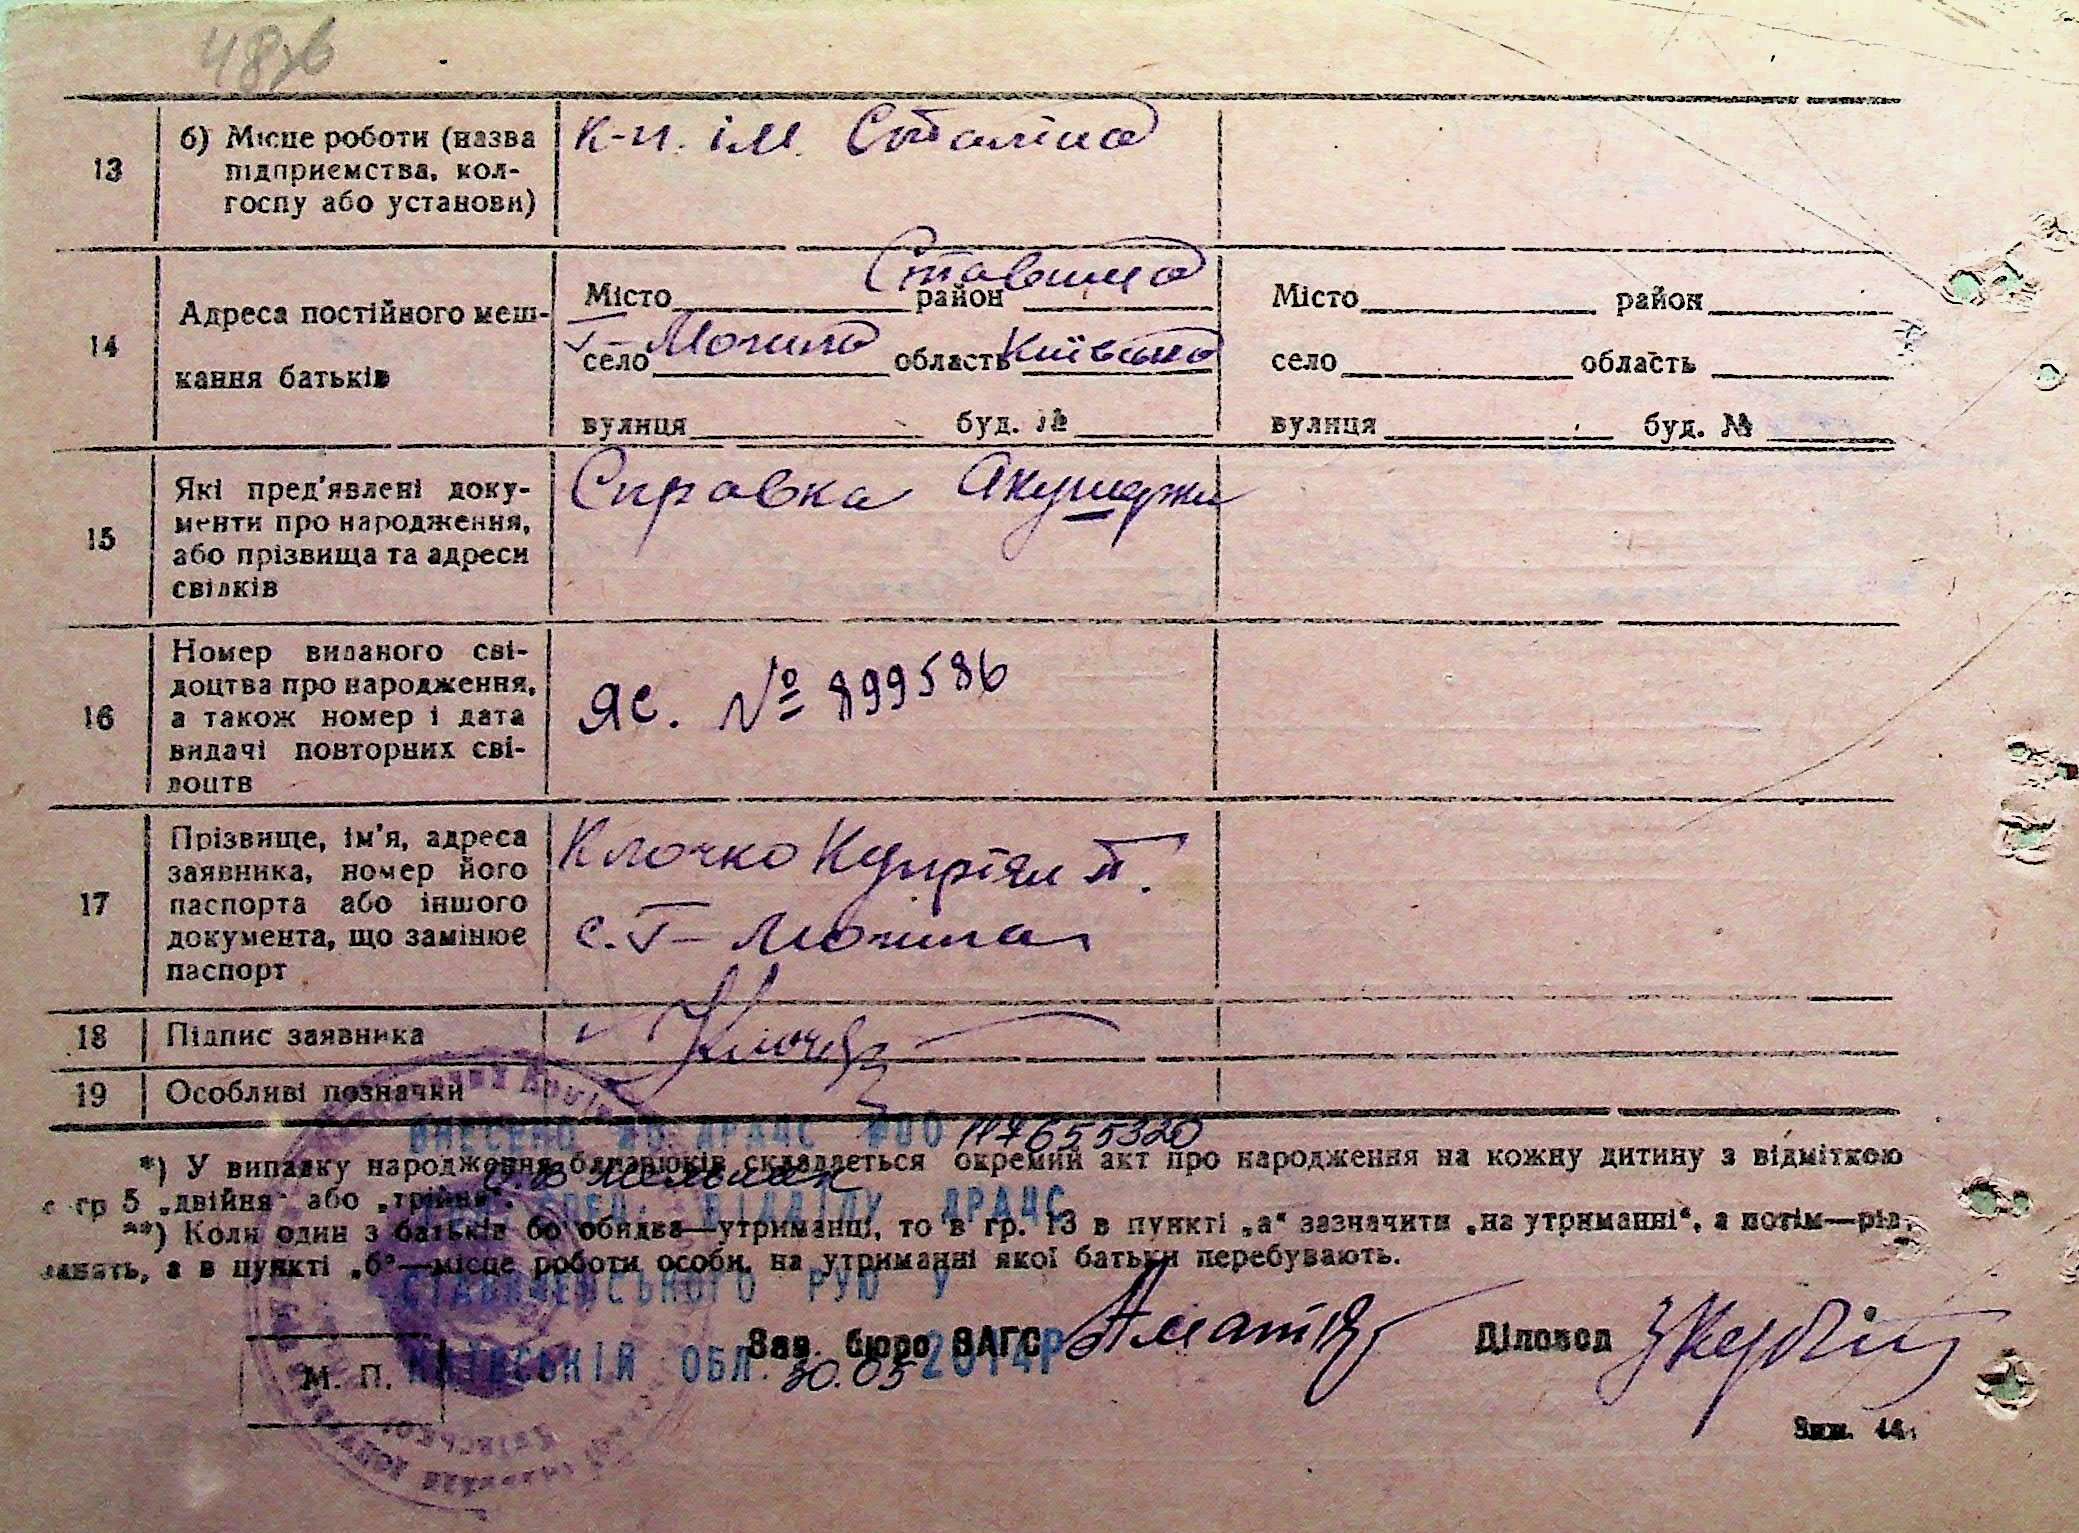 48зв
13
б) Місце роботи (назва
підприємства, кол-
госпу або установи)
к-п. ім. Сталіна
14
Адреса постійного меш-
кання батьків
Місто район Ставище
село Т-Могила область Київська
вулиця буд. №
Місто район
село область
вулиця буд. №
15
Які пред'явлені доку-
менти про народження,
або прізвища та адреси
свідків
Справка Акушерки
16
Номер виданого сві-
доцтва про народження,
а також номер і дата
видачі повторних сві-
доцтв
ЯС. № 899586
17
Прізвище, ім'я, адреса
заявника, номер його
паспорта або іншого
документа, що замінює
паспорт
Клочко Купріян П.
с. Т-Могила
18
Підпис заявника
19
Особливі позначки
ВНЕСЕНО ДО ДРАЦС №00 117655320
*) У випадку народження близнюків складається окремий акт про народження на кожну дитину з відміткою
в гр 5 „двійня“ або „трійня“.
СПЕЦ. ВІДДІЛУ ДРАЦС
**) Коли один з батьків бо обидва—утриманці, то в гр. 13 в пункті „а“ зазначити „на утриманні“, а потім—рід
занять, а в пункті „б“—місце роботи особи, на утриманні якої батьки перебувають.
СТАВИЩЕНСЬКОГО РУЮ У
Зав. бюро ЗАГС
Діловод
М. П.
КИЇВСЬКІЙ ОБЛ. 30.05 2014Р
Зам. 44